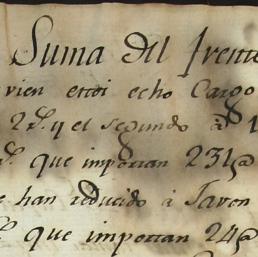 Suma del frente
vien estoi echo Cargo
2 rs. y el segundo à 1
rs. que importan 231
han reducido à
rs. que importan 24